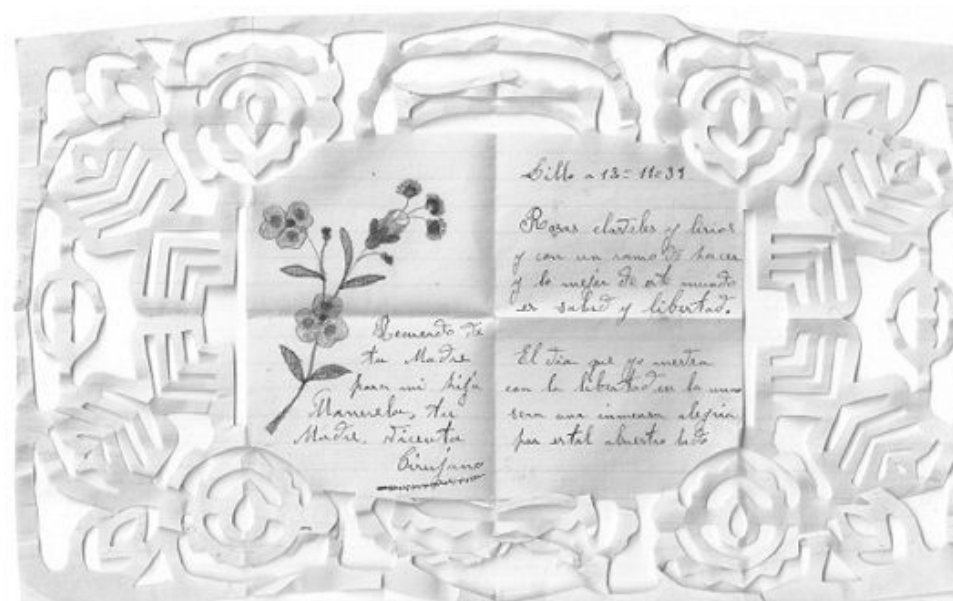 Recuerdo de
tu Madre
para mi hija
Manuela, tu
Madre. Vicenta
Cirujano
Lillo a 13= 11=39
Rosas claveles y lirios
y con un ramo de
y lo mejor de este mundo
es salud y libertad.
El dia que yo
con la libertad en la mano
sera una inmensa alegria
por estal abuestro lado